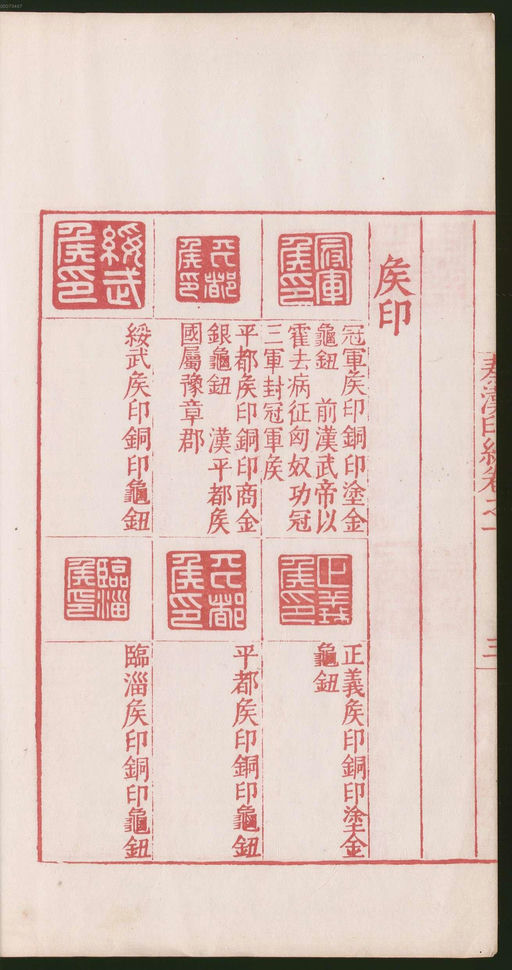 00073447
秦漢印統卷之一
三
矦印
冠軍矦印
冠軍矦印銅印塗金
龜鈕　前漢武帝以
霍去病征匈奴功冠
三軍封冠軍矦
正義矦印
正義矦印銅印塗金
龜鈕
平都矦印
平都矦印銅印商金
銀龜鈕　漢平都矦
國屬豫章郡
平都矦印
平都矦印銅印龜鈕
綏武矦印
綏武矦印銅印龜鈕
臨淄矦印
臨淄矦印銅印龜鈕